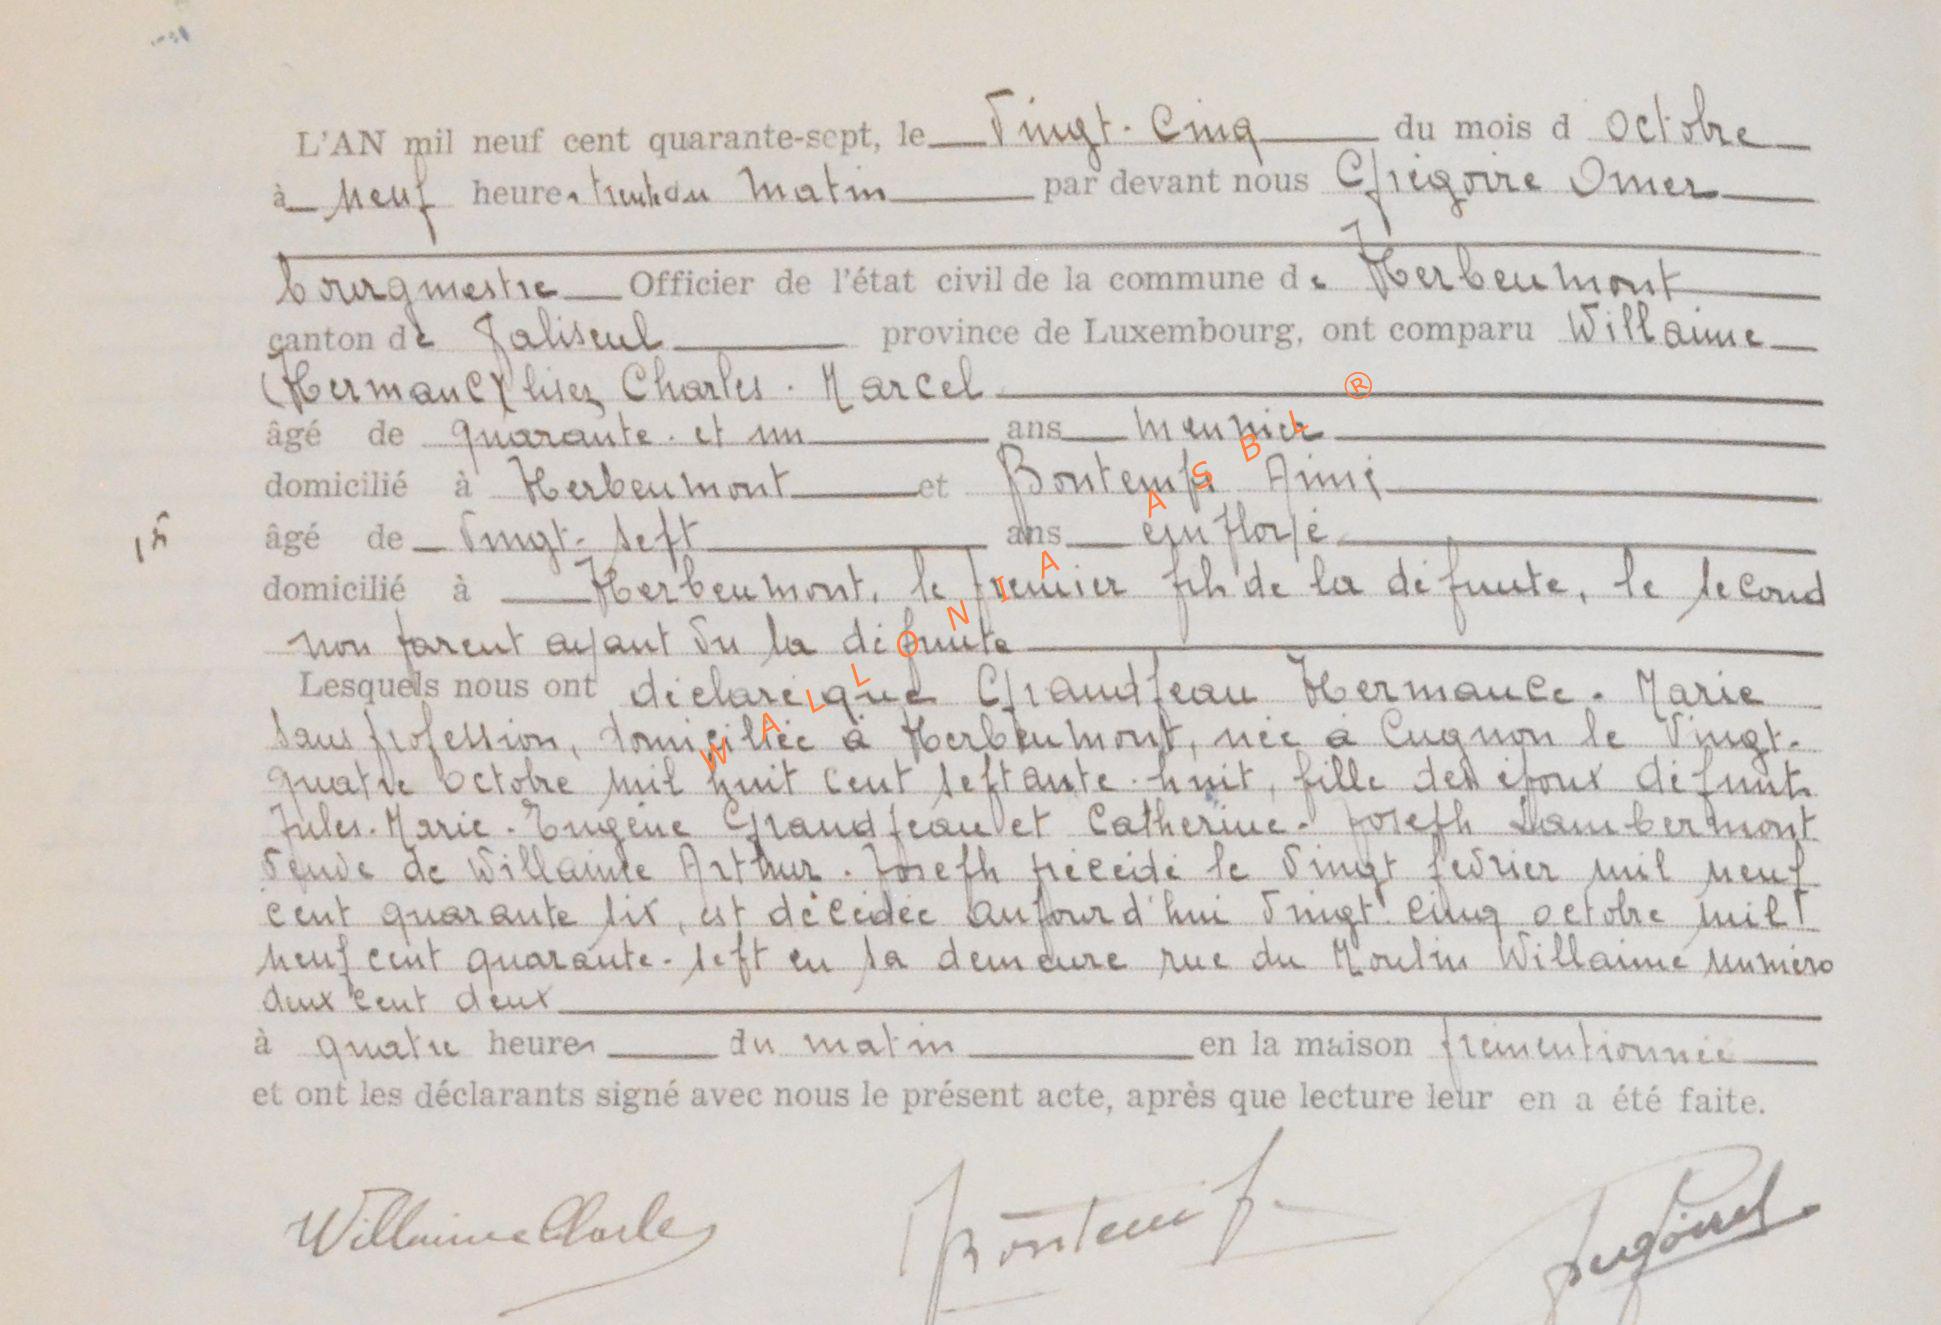 L'AN mil neuf cent quarante-sept, le Vingt-Cinq du mois d Octobre
à neuf heures trente du matin par devant nous Grégoire Omer
bourgmestre Officier de l'état civil de la commune de Herbeumont
canton de Paliseul province de Luxembourg, ont comparu Willaime
(Hermance) lisez Charles-Marcel
âgé de quarante-et un ans meunier
domicilié à Herbeumont et Bontemps Aimé
15 âgé de Vingt-sept ans employé
domicilié à Herbeumont, le premier fils de la défunte, le second
non parent ayant vu la défunte
Lesquels nous ont déclaré que Grandjean Hermance-Marie
sans profession, domiciliée à Herbeumont, née à Cugnon le Vingt-
quatre Octobre mil huit cent septante-huit, fille des époux défunts
Jules-Marie-Eugène Grandjean et Catherine-Joseph Lambermont
veuve de Willaime Arthur-Joseph décédé le Vingt février mil neuf
cent quarante six, est décédée aujourd'hui Vingt cinq octobre mil
neuf cent quarante-sept en sa demeure rue du Moulin Willaime numéro
deux cent deux
à quatre heures du matin en la maison prémentionnée
et ont les déclarants signé avec nous le présent acte, après que lecture leur en a été faite.
Willaime Charles Bontemps
WALLONIA ASBL ®